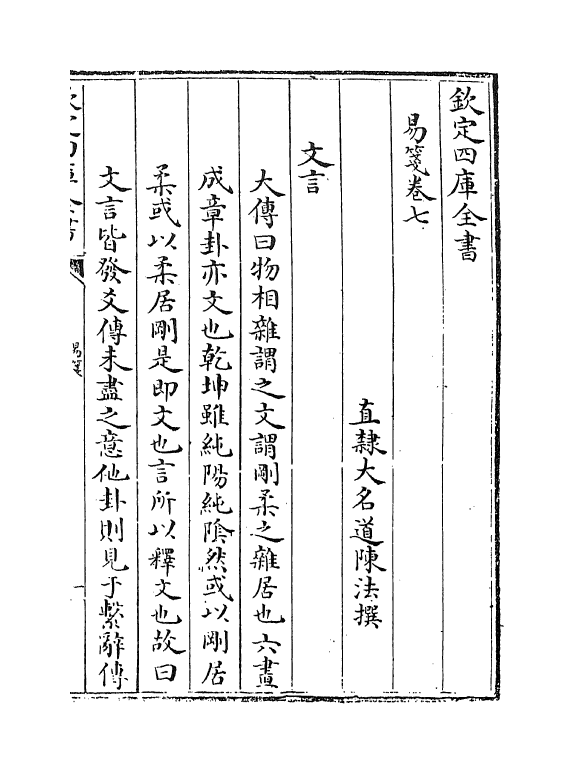 欽定四庫全書
易箋卷七
直隸大名道陳法撰
文言
大傳曰物相雜謂之文謂剛柔之雜居也六畫
成章卦亦文也乾坤雖純陽純陰然或以剛居
柔或以柔居剛是即文也言所以釋文也故曰
文言皆發爻傳未盡之意他卦則見于繫辭傳
易箋